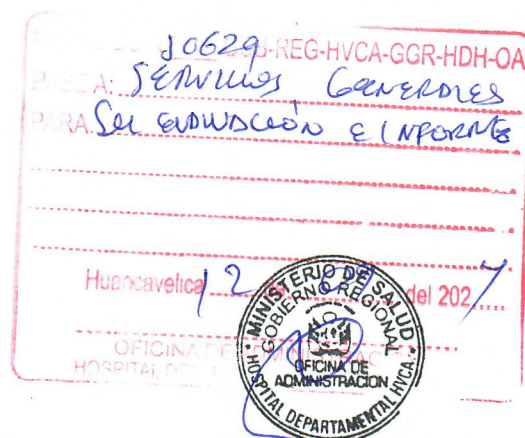 10629 -REG-HVCA-GGR-HDH-OA
PASE A: SERVICIOS GENERALES
PARA: SU EVALUACIÓN E INFORME
Huancavelica, 12 del 202
MINISTERIO DE SALUD
GOBIERNO REGIONAL
OFICINA DE
ADMINISTRACION
HOSPITAL DEPARTAMENTAL HVCA.
OFICINA DE
HOSPITAL